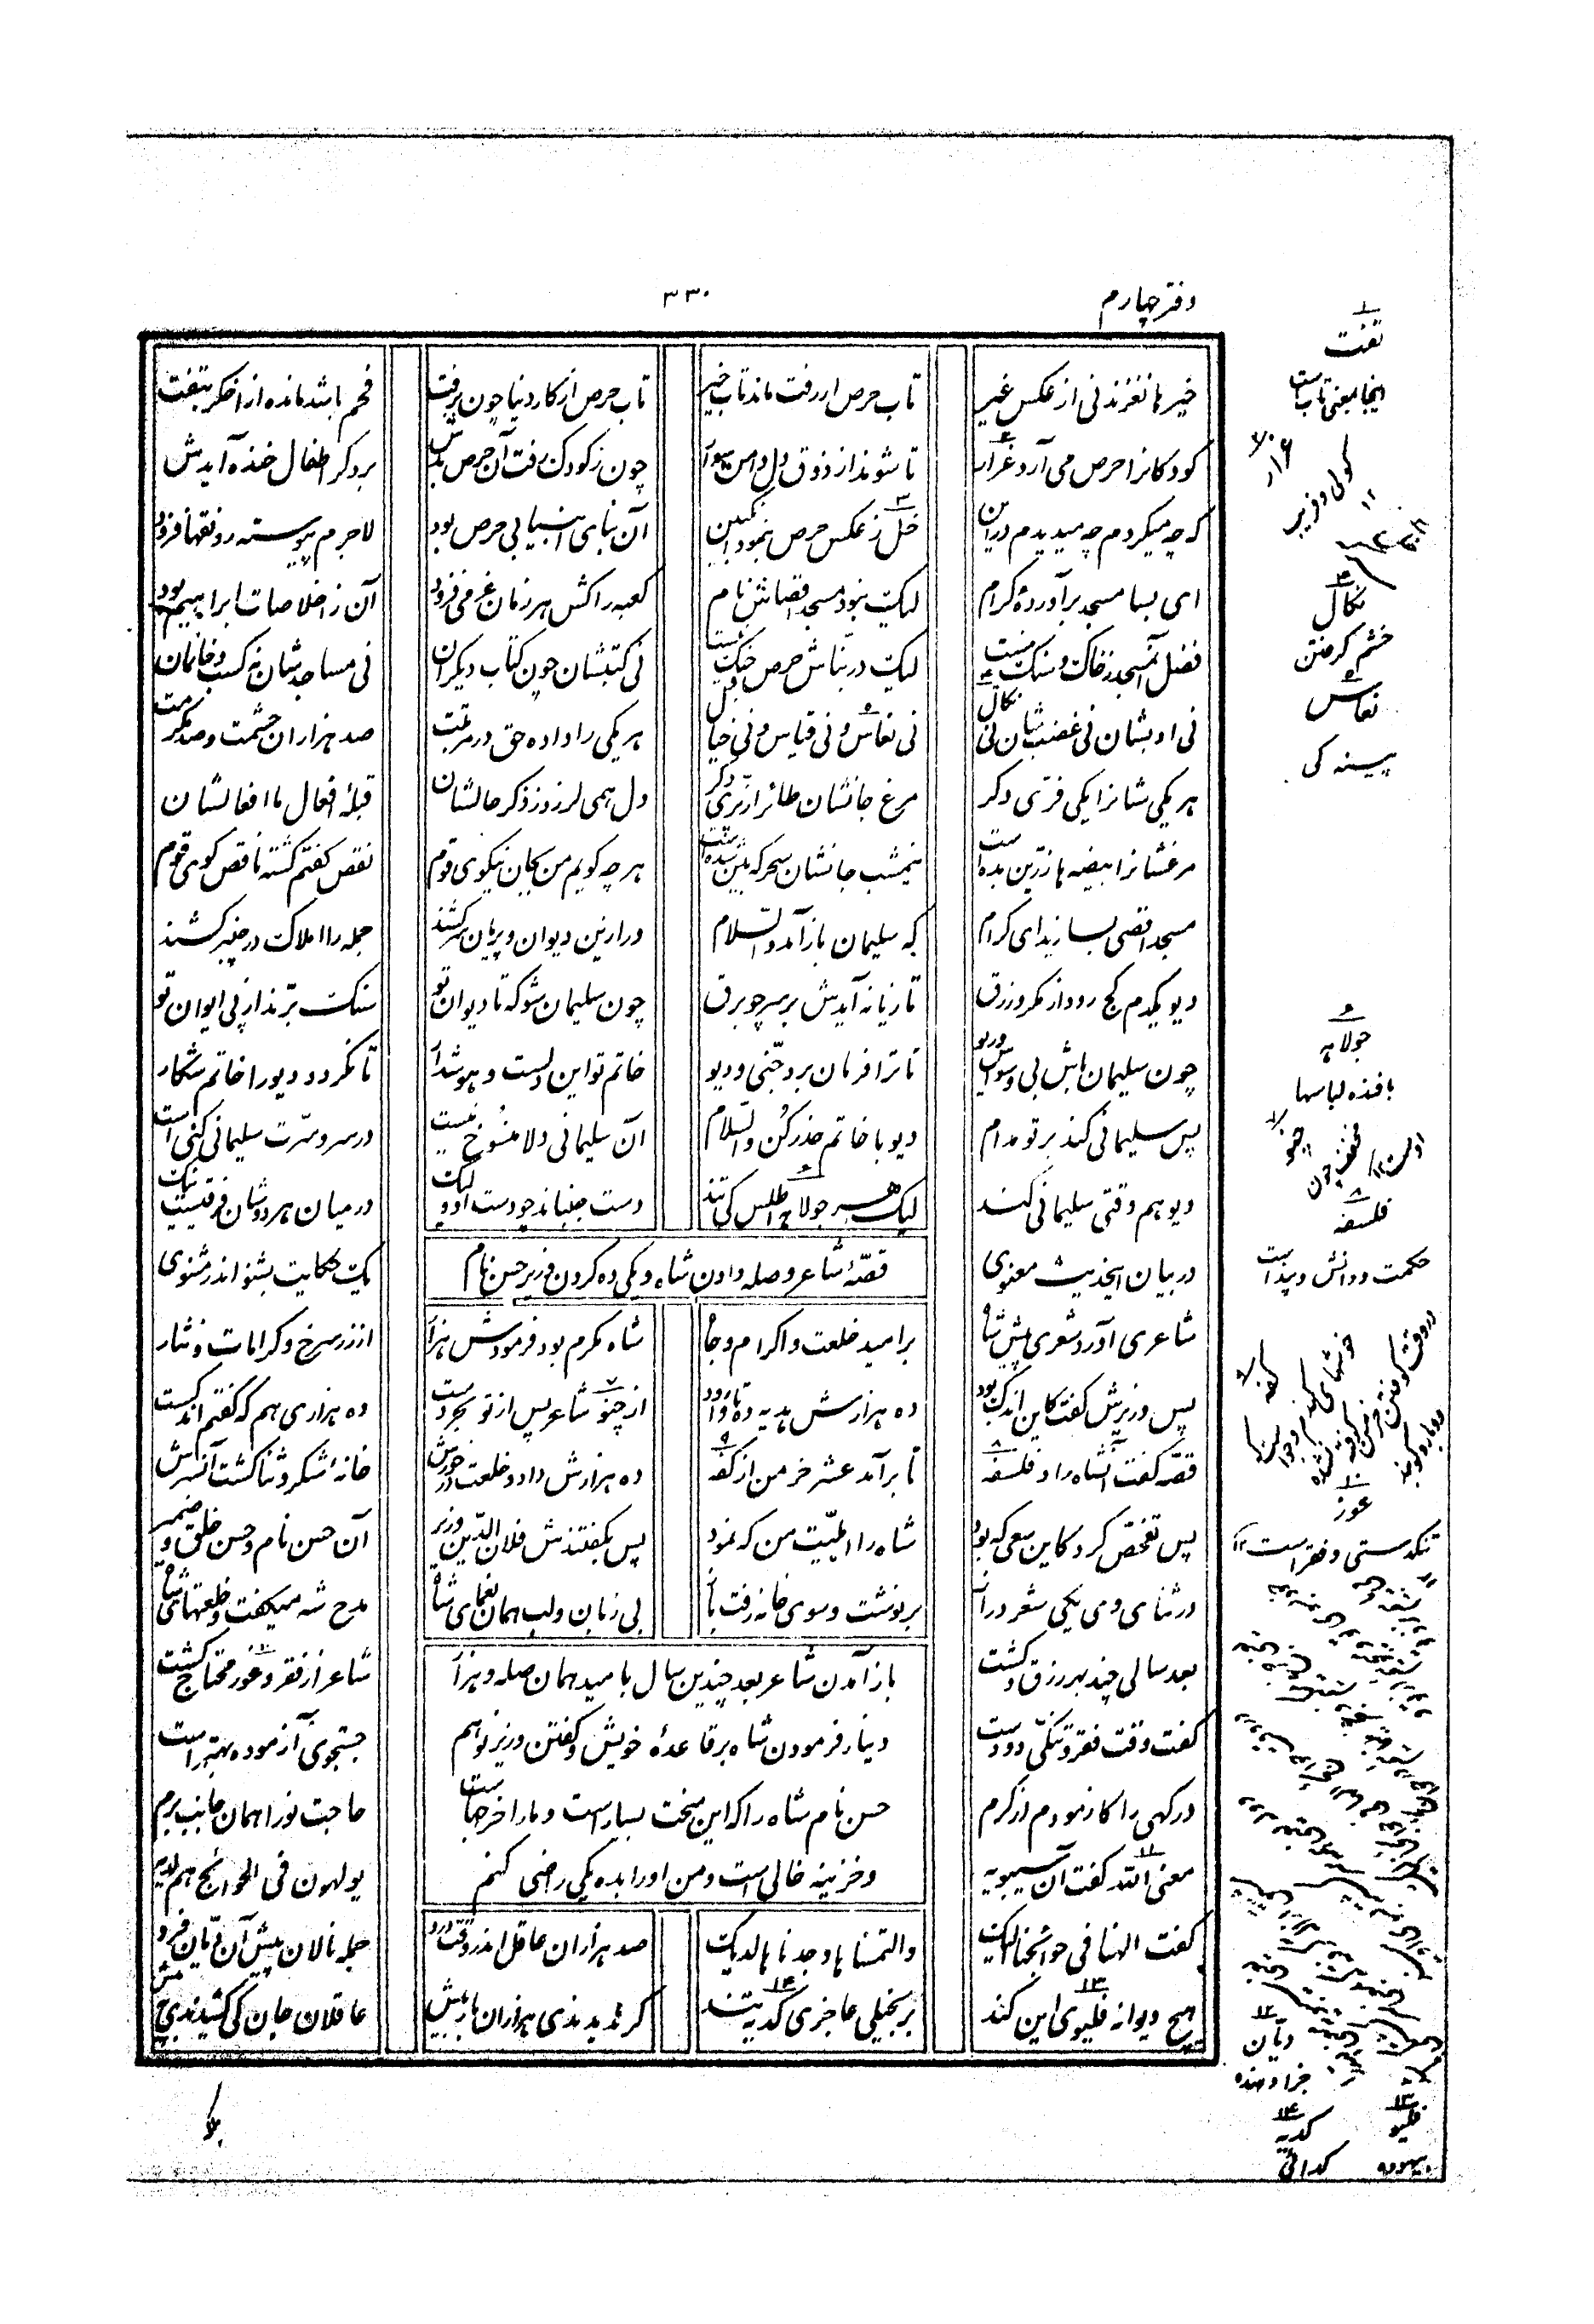 دفتر چهارم
۳۳۰
خیرها نغزند نی از عکس غیر تاب حرص ار رفت ماند تاب خیر تاب حرص از کار دنیا چون برفت فحم باشد مانده از اخگر بتفت
کودکانرا حرص می آرد غرار تا شوند از ذوق دل دامن سوار چون ز کودک رفت آن حرص بدش بر دگر اطفال خنده آیدش
که چه میکردم چه میدیدم درین خل ز عکس حرص بنمود انگبین آن بنای انبیا بی حرص بود لاجرم پیوسته رونقها فزود
ای بسا مسجد برآورده کرام لیک نبود مسجد اقصاش نام کعبه را کش هر زمان عز می فزود آن ز اخلاصات ابراهیم بود
فضل آنمسجد ز خاک و سنگ نیست لیک در بناش حرص و جنگ نیست نی کتبشان چون کتاب دیگران نی مساجدشان نه کسب و خانمان
نی ادبشان نی غضبشان نی نکال نی نعاس و نی قیاس و نی خیال هر یکی را داده حق در مرتبت صد هزاران حشمت و صد مکرمت
هر یکی شانرا یکی فرّی دگر مرغ جانشان طائر از پرّی دگر دل همی لرزد ز ذکر حالشان قبلهٔ افعال ما افعالشان
مرغشانرا بیضه ها زرّین بده است نیمشب جانشان سحرگه بین شده است هر چه گویم من بجان نیکوی قوم نقص گفتم گشته ناقص گوی قوم
مسجد اقصی بسازید ای کرام که سلیمان باز آمد والسّلام ور ازین دیوان و پریان سر کشند جمله را املاک در چنبر کشند
دیو یکدم کج رود از مکر و زرق تازیانه آیدش بر سر چو برق چون سلیمان شو که تا دیوان تو سنگ برّند از پی ایوان تو
چون سلیمان باش بی وسواس و ریو تا ترا فرمان برد جنّی و دیو خاتم تو این دلست و هوش دار تا نگردد دیو را خاتم شکار
پس سلیمانی کند بر تو مدام دیو با خاتم حذر کن والسّلام آن سلیمانی دلا منسوخ نیست در سر و سرّت سلیمانی کنی است
دیو هم وقتی سلیمانی کند لیک هر جولاهه اطلس کی تند دست جنباند چو دست او ولیک در میان هر دوشان فرقیست نیک
در بیان اینحدیث معنوی یک حکایت بشنو اندر مثنوی
قصّهٔ شاعر و صله دادن شاه و یکی ده کردن وزیر حسن نام
شاعری آورد شعری پیش شاه بر امید خلعت و اکرام و جاه شاه مکرم بود فرمودش هزار از زر سرخ و کرامات و نثار
پس وزیرش گفت کاین اندک بود ده هزارش هدیه ده تا وا رود از چنو شاعر پس از تو بحر دست ده هزاری هم که گفتم اندکست
قصّه گفت آنشاه را و فلسفه تا برآمد عشر خرمن از کفه ده هزارش داد و خلعت درخورش خانهٔ شکر و ثنا گشت آنسرش
پس تفحّص کرد کاین سعی که بود شاه را اهلیّت من که نمود پس بگفتندش فلان الدّین وزیر آن حسن نام و حسن خلق و ضمیر
در ثنای وی یکی شعر دراز بر نوشت و سوی خانه رفت باز بی زبان و لب همان نعمای شاه مدح شه میگفت و خلعتهای شاه
باز آمدن شاعر بعد چندین سال بامید همان صله و هزار
دینار فرمودن شاه بر قاعدهٔ خویش و گفتن وزیر نو هم
حسن نام شاه را که این سخت بسیار است و ما را خرجهاست
و خزینه خالی است و من او را بده یکی راضی کنم
بعد سالی چند بهر رزق و کشت شاعر از فقر و عوز محتاج گشت
گفت وقت فقر و تنگی دو دست جستجوی آزموده بهتر است
درگهی را کازمودم از کرم حاجت نو را همان جانب برم
معنی الله گفت آن سیبویه یولهون فی الحوائج هم لدیه
گفت الهنا فی حوائجنا الیک والتمسناها وجدناها لدیک صد هزاران عاقل اندر وقت درد جمله نالان پیش آن دیّان فرد
هیچ دیوانه فلیوی این کند بر بخیلی عاجزی گدیه تند گر ندیدندی هزاران بار بیش عاقلان جان کی کشیدندیش پیش
۱
تفت
اینجا بمعنی تاب است
۲ غرار
گولی و فریب
۴
نکال
خشم گرفتن
۵
نعاس
پینه کی
۶
جولاهه
بافنده لباسها
۷ چنو مخفف چون اوست ۱۲
۸
فلسفه
حکمت و دانش و پند است
۹ کفه
۱۰
عوز
تنگدستی و فقر است ۱۲
۱۲
دیّان
جزا دهنده
۱۳
فلیو
بیهوده
۱۴
گدیه
گدائی